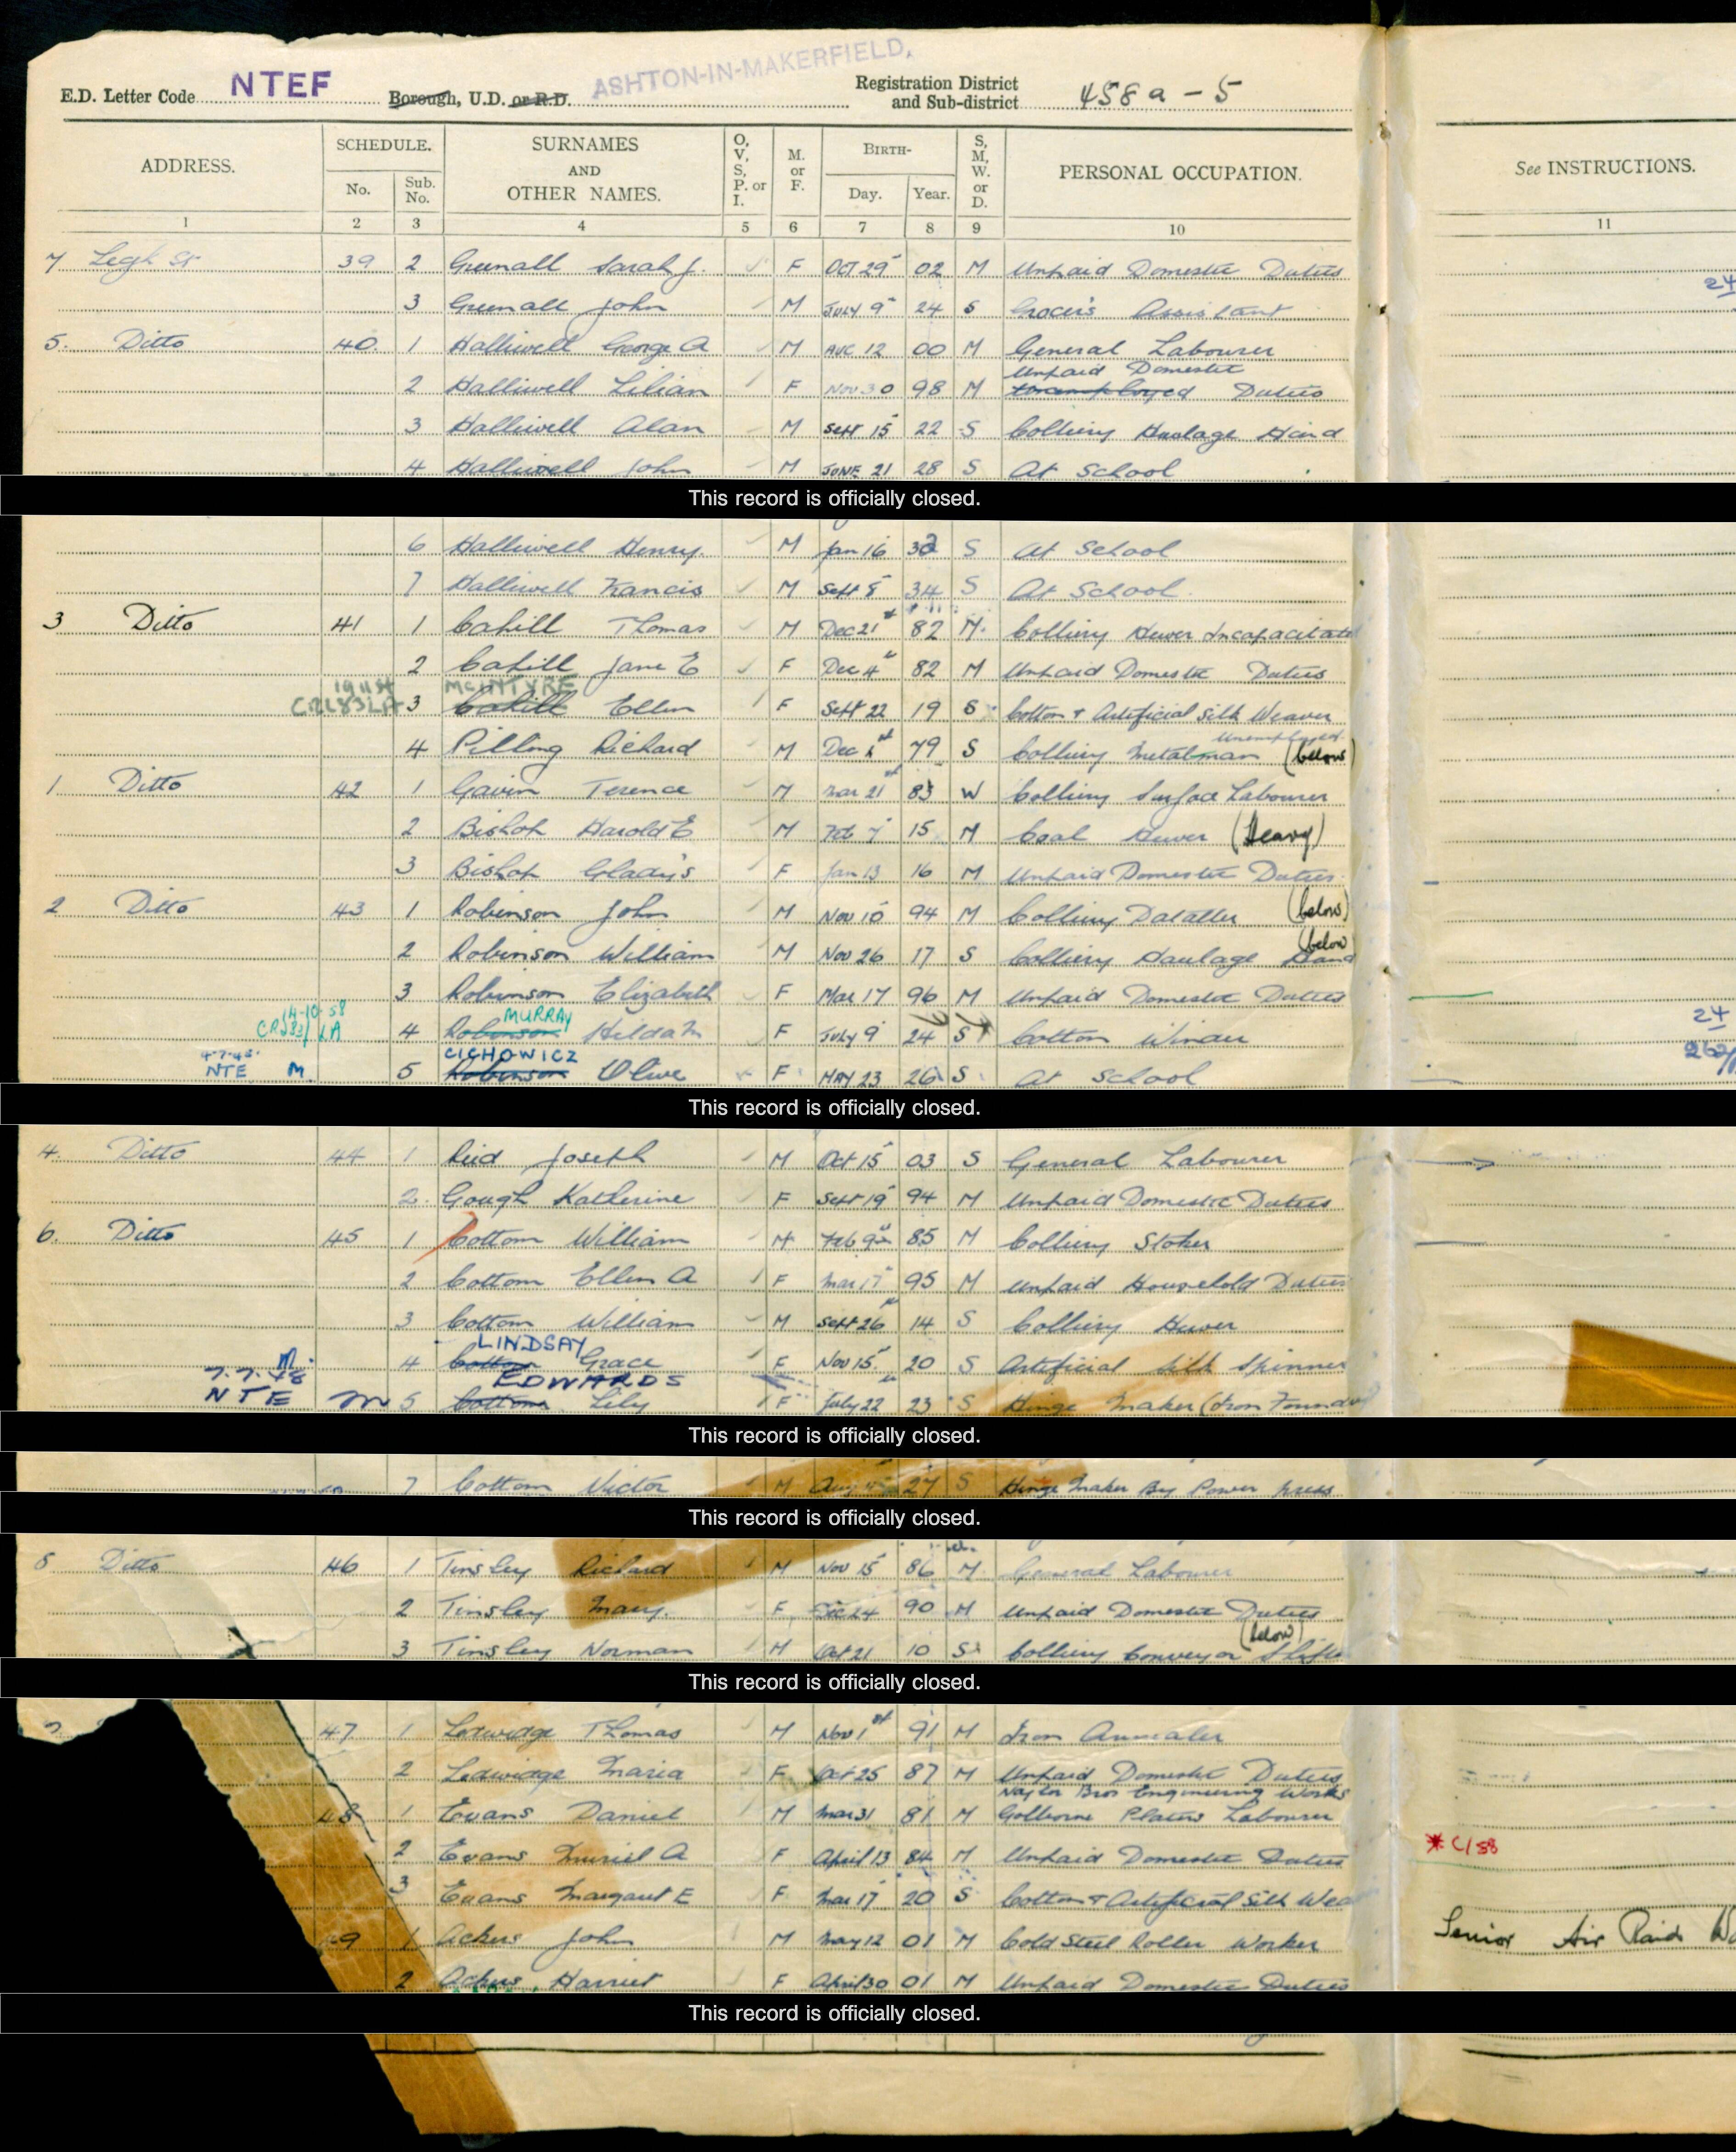 E.D. Letter Code NTEF Borough, U.D. or R.D. ASHTON-IN-MAKERFIELD. Registration District and Sub-district 458 a - 5
ADDRESS. SCHEDULE. No. Sub. No. SURNAMES AND OTHER NAMES. O, V, S, P. or I. M. or F. BIRTH- Day. Year. S, M, W. or D. PERSONAL OCCUPATION. See INSTRUCTIONS.
1 2 3 4 5 6 7 8 9 10 11
7 Legh St 39 2 Greenall Sarah J. F OCT 29 02 M Unpaid Domestic Duties
24
3 Greenall John M JULY 9 24 S Grocer's Assistant
5. Ditto 40. 1 Halliwell George A M AUG 12 00 M General Labourer
Unpaid Domestic
2 Halliwell Lilian F Nov 30 98 M Unemployed Duties
3 Halliwell Alan M Sept 15 22 S Colliery Haulage Hand
4 Halliwell John M JUNE 21 28 S At School
This record is officially closed.
6 Halliwell Henry. M Jan 16 32 S At School
7 Halliwell Francis M Sept 5 34 S At School.
3 Ditto 41 1 Cahill Thomas M Dec 21st 82 M. Colliery Hewer Incapacitated
2 Cahill Jane E F Dec 4 82 M Unpaid Domestic Duties
McINTYRE
CR283LA 3 Cahill Ellen F Sept 22 19 S Cotton + Artificial Silk Weaver
Unemployed.
4 Pilling Richard M Dec 79 S Colliery Metalman (below)
1 Ditto 42 1 Gavin Terence M Mar 21st 83 W Colliery Surface Labourer
2 Bishop Harold E M Feb 7 15 M Coal Hewer (Heavy)
3 Bishop Gladys F Jan 13 16 M Unpaid Domestic Duties
2 Ditto 43 1 Robinson John M Nov 10 94 M Colliery Dataller (below)
(below)
2 Robinson William M Nov 26 17 S Colliery Haulage Hand
3 Robinson Elizabeth F Mar 17 96 M Unpaid Domestic Duties
14-10-58 MURRAY
CR283/LA 4 Robinson Hilda M F July 9 24 S Cotton Winder
24
CICHOWICZ
NTE M. 5 Robinson Olive F MAY 23 26 S At School
This record is officially closed.
4. Ditto 44 1 Reid Joseph M Oct 15 03 S General Labourer
2. Gough Katherine F Sept 19 94 M Unpaid Domestic Duties
6. Ditto 45 1 Cottom William M Feb 9 85 M Colliery Stoker
2 Cottom Ellen A F Mar 17 95 M Unpaid Household Duties
3 Cottom William M Sept 26 14 S Colliery Hewer
LINDSAY
M. 4 Cottom Grace F Nov 15 20 S Artificial Silk Spinner
7.7.48 EDWARDS
NTE M 5 Cottom Lily F July 22 23 S Hinge Maker (Iron Foundry
This record is officially closed.
7 Cottom Victor M Aug 27 S Hinge Maker By Power Press
This record is officially closed.
8 Ditto 46 1 Tinsley Richard M Nov 15 86 M. General Labourer
2 Tinsley Mary. F Dec 24 90 M Unpaid Domestic Duties
(below)
3 Tinsley Norman M Oct 21 10 S Colliery Conveyor Shifter
This record is officially closed.
47 1 Ledwidge Thomas M Nov 1st 91 M Iron Annealer
2 Ledwidge Maria F Oct 25 87 M Unpaid Domestic Duties
Naylor Bros Engineering Works
48 1 Evans Daniel M Mar 31 81 M Golborne Platers Labourer
* C/58
2 Evans Muriel A F April 13 84 M Unpaid Domestic Duties
3 Evans Margaret E F Mar 17 20 S Cotton + Artificial Silk Wea
49 1 Ackers John M May 12 01 M Cold Steel Roller Worker Senior Air Raid
2 Ackers Harriet F April 30 01 M Unpaid Domestic Duties
This record is officially closed.